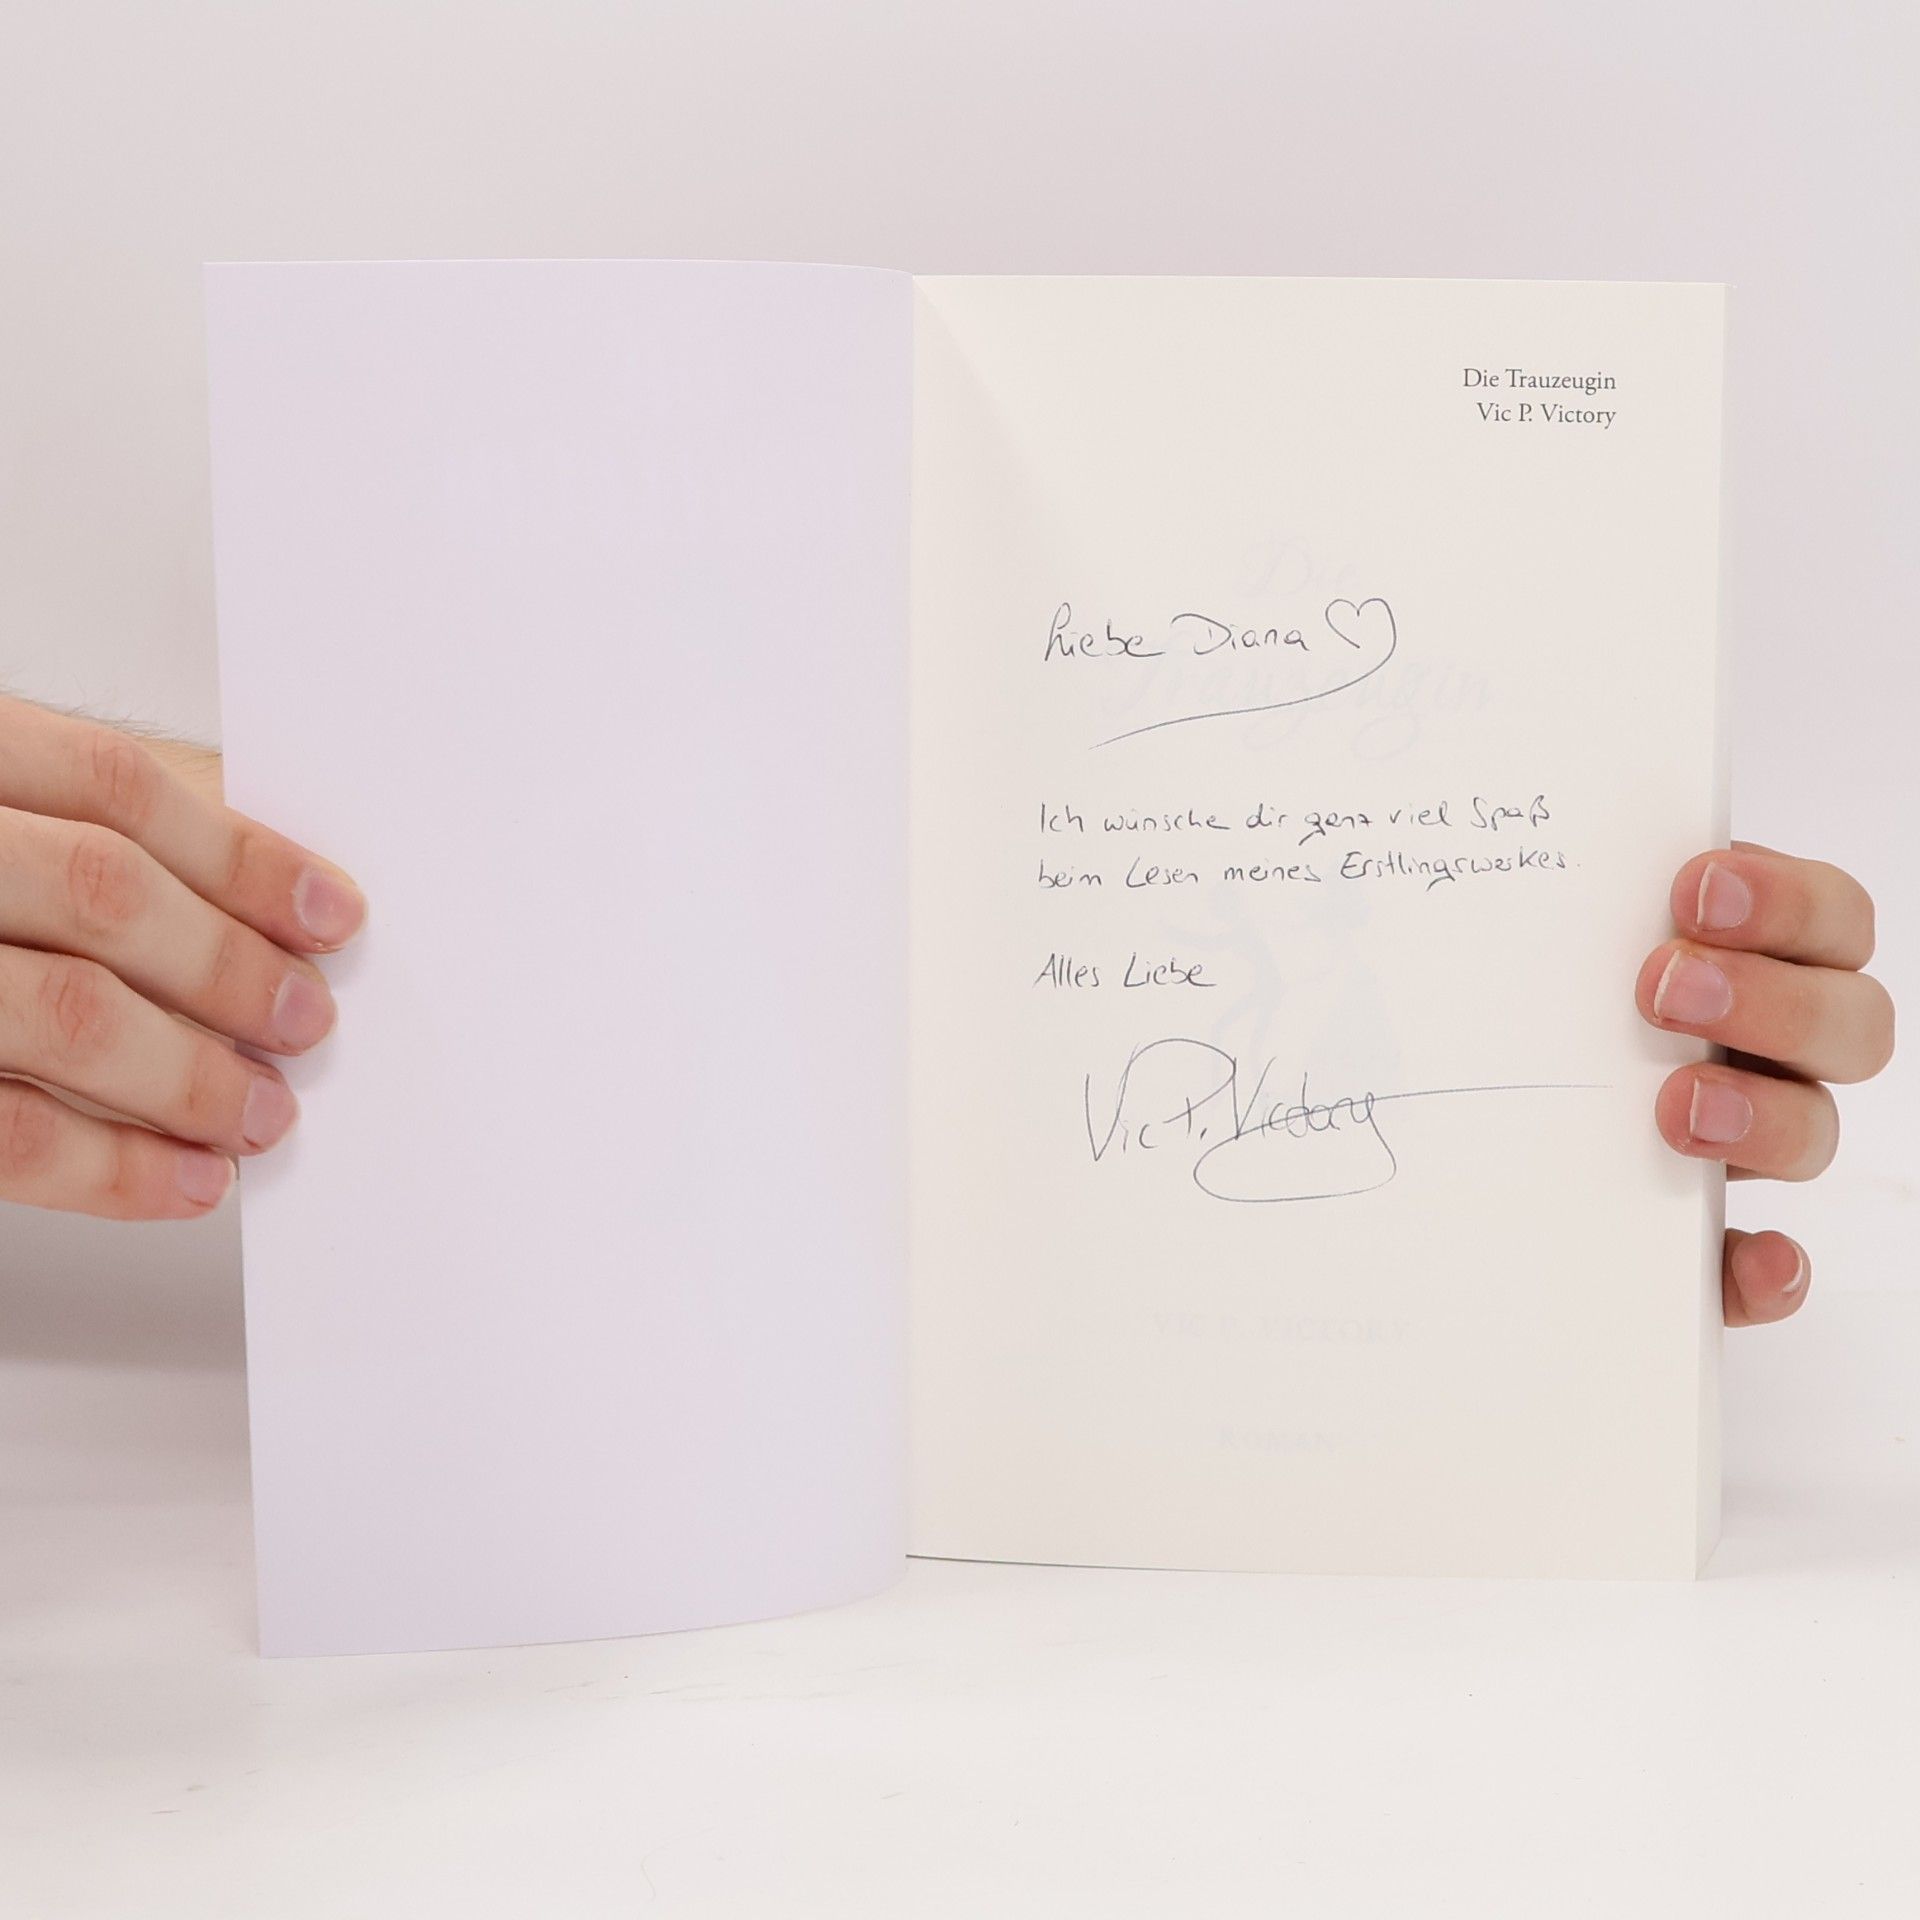 Die Trauzeugin
Vic P. Victory
Liebe Diana ♡
Ich wünsche dir ganz viel Spaß
beim Lesen meines Erstlingswerkes.
Alles Liebe
Vic P. Victory
Die
Trauzeugin
VIC P. VICTORY
ROMAN